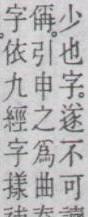 少也字。遂不可
偁。引申之爲曲
字依九經字㨾